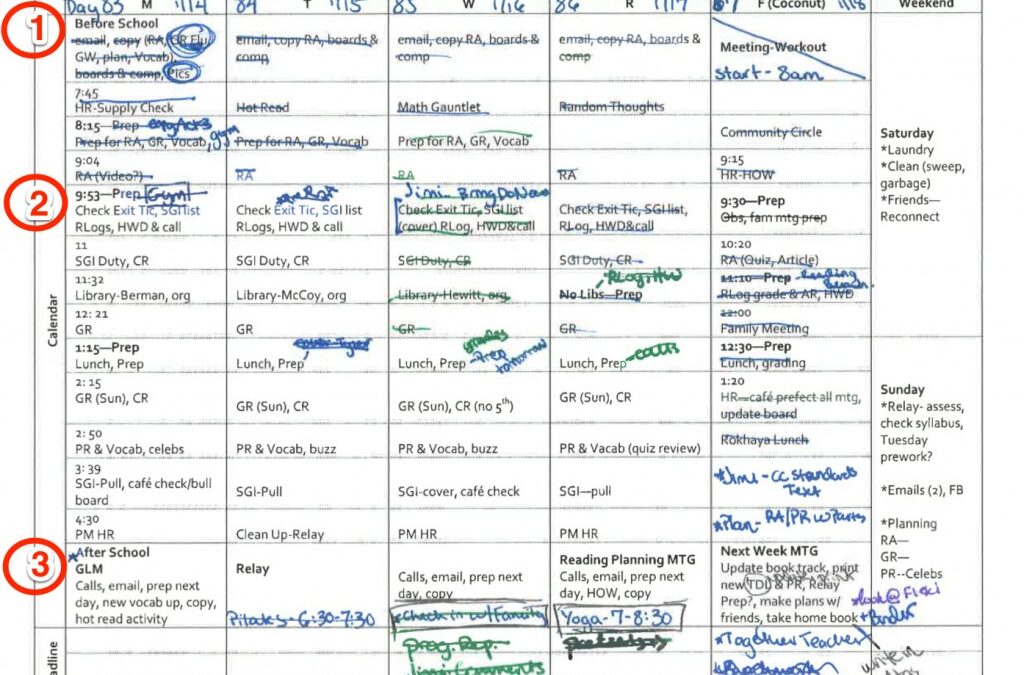 Day 83 M 1/14
84 T 1/15
85 W 1/16
86 R 1/17
87 F (Coconut) 1/18
Weekend
1
Before School
email, copy (RA, GR Flu
GW, plan, Vocab),
boards & comp, Pics
email, copy RA, boards &
comp
email, copy RA, boards &
comp
email, copy RA, boards &
comp
Meeting-Workout
start - 8am
7:45
HR-Supply Check
Hot Read
Math Gauntlet
Random Thoughts
8:15—Prep
Prep for RA, GR, Vocab, gym
Prep for RA, GR, Vocab
Prep for RA, GR, Vocab
Community Circle
9:04
RA (Video?)
RA
RA
RA
9:15
HR-HOW
2
9:53—Prep Gym
Check Exit Tic, SGI list
RLogs, HWD & call
Check Exit Tic, SGI list
RLogs, HWD & call
Jimi - Bring Do Now
Check Exit Tic, SGI list
(cover) RLog, HWD&call
Check Exit Tic, SGI list,
RLog, HWD&call
9:30—Prep
Obs, fam mtg prep
11
SGI Duty, CR
SGI Duty, CR
SGI Duty, CR
SGI Duty, CR
10:20
RA (Quiz, Article)
11:32
Library-Berman, org
Library-McCoy, org
Library-Hewitt, org
RLog, HW
No Libs—Prep
11:10—Prep - Reading
RLog grade & AR, HWD
12: 21
GR
GR
GR
GR
12:00
Family Meeting
1:15—Prep
Lunch, Prep
Lunch, Prep
Lunch, Prep
grades
-Prep
tomorrow
Lunch, Prep -calls
12:30—Prep
Lunch, grading
2: 15
GR (Sun), CR
GR (Sun), CR
GR (Sun), CR (no 5th)
GR (Sun), CR
1:20
HR—café prefect all mtg,
update board
2: 50
PR & Vocab, celebs
PR & Vocab, buzz
PR & Vocab, buzz
PR & Vacab (quiz review)
Rokhaya Lunch
3: 39
SGI-Pull, café check/bull
board
SGI-Pull
SGI-cover, café check
SGI—pull
*Jimi - CC Standards
Text
4:30
PM HR
Clean Up-Relay
PM HR
PM HR
*Plan - RA/PR w Parts
3
*After School
GLM
Calls, email, prep next
day, new vocab up, copy,
hot read activity
Relay
Pilates - 6:30-7:30
Calls, email, prep next
day, copy
*Check in w/ Family
Reading Planning MTG
Calls, email, prep next
day, HOW, copy
Yoga - 7-8:30
Next Week MTG
Update book track, print
new TDL & PR, Relay
Prep?, make plans w/
friends, take home book
look @ Flexi
+Binder
Calendar
Saturday
*Laundry
*Clean (sweep,
garbage)
*Friends—
Reconnect
Sunday
*Relay- assess,
check syllabus,
Tuesday
prework?
*Emails (2), FB
*Planning
RA—
GR—
PR--Celebs
prog. Rep.
Jimi Comments
*Together Teacher
written
adline